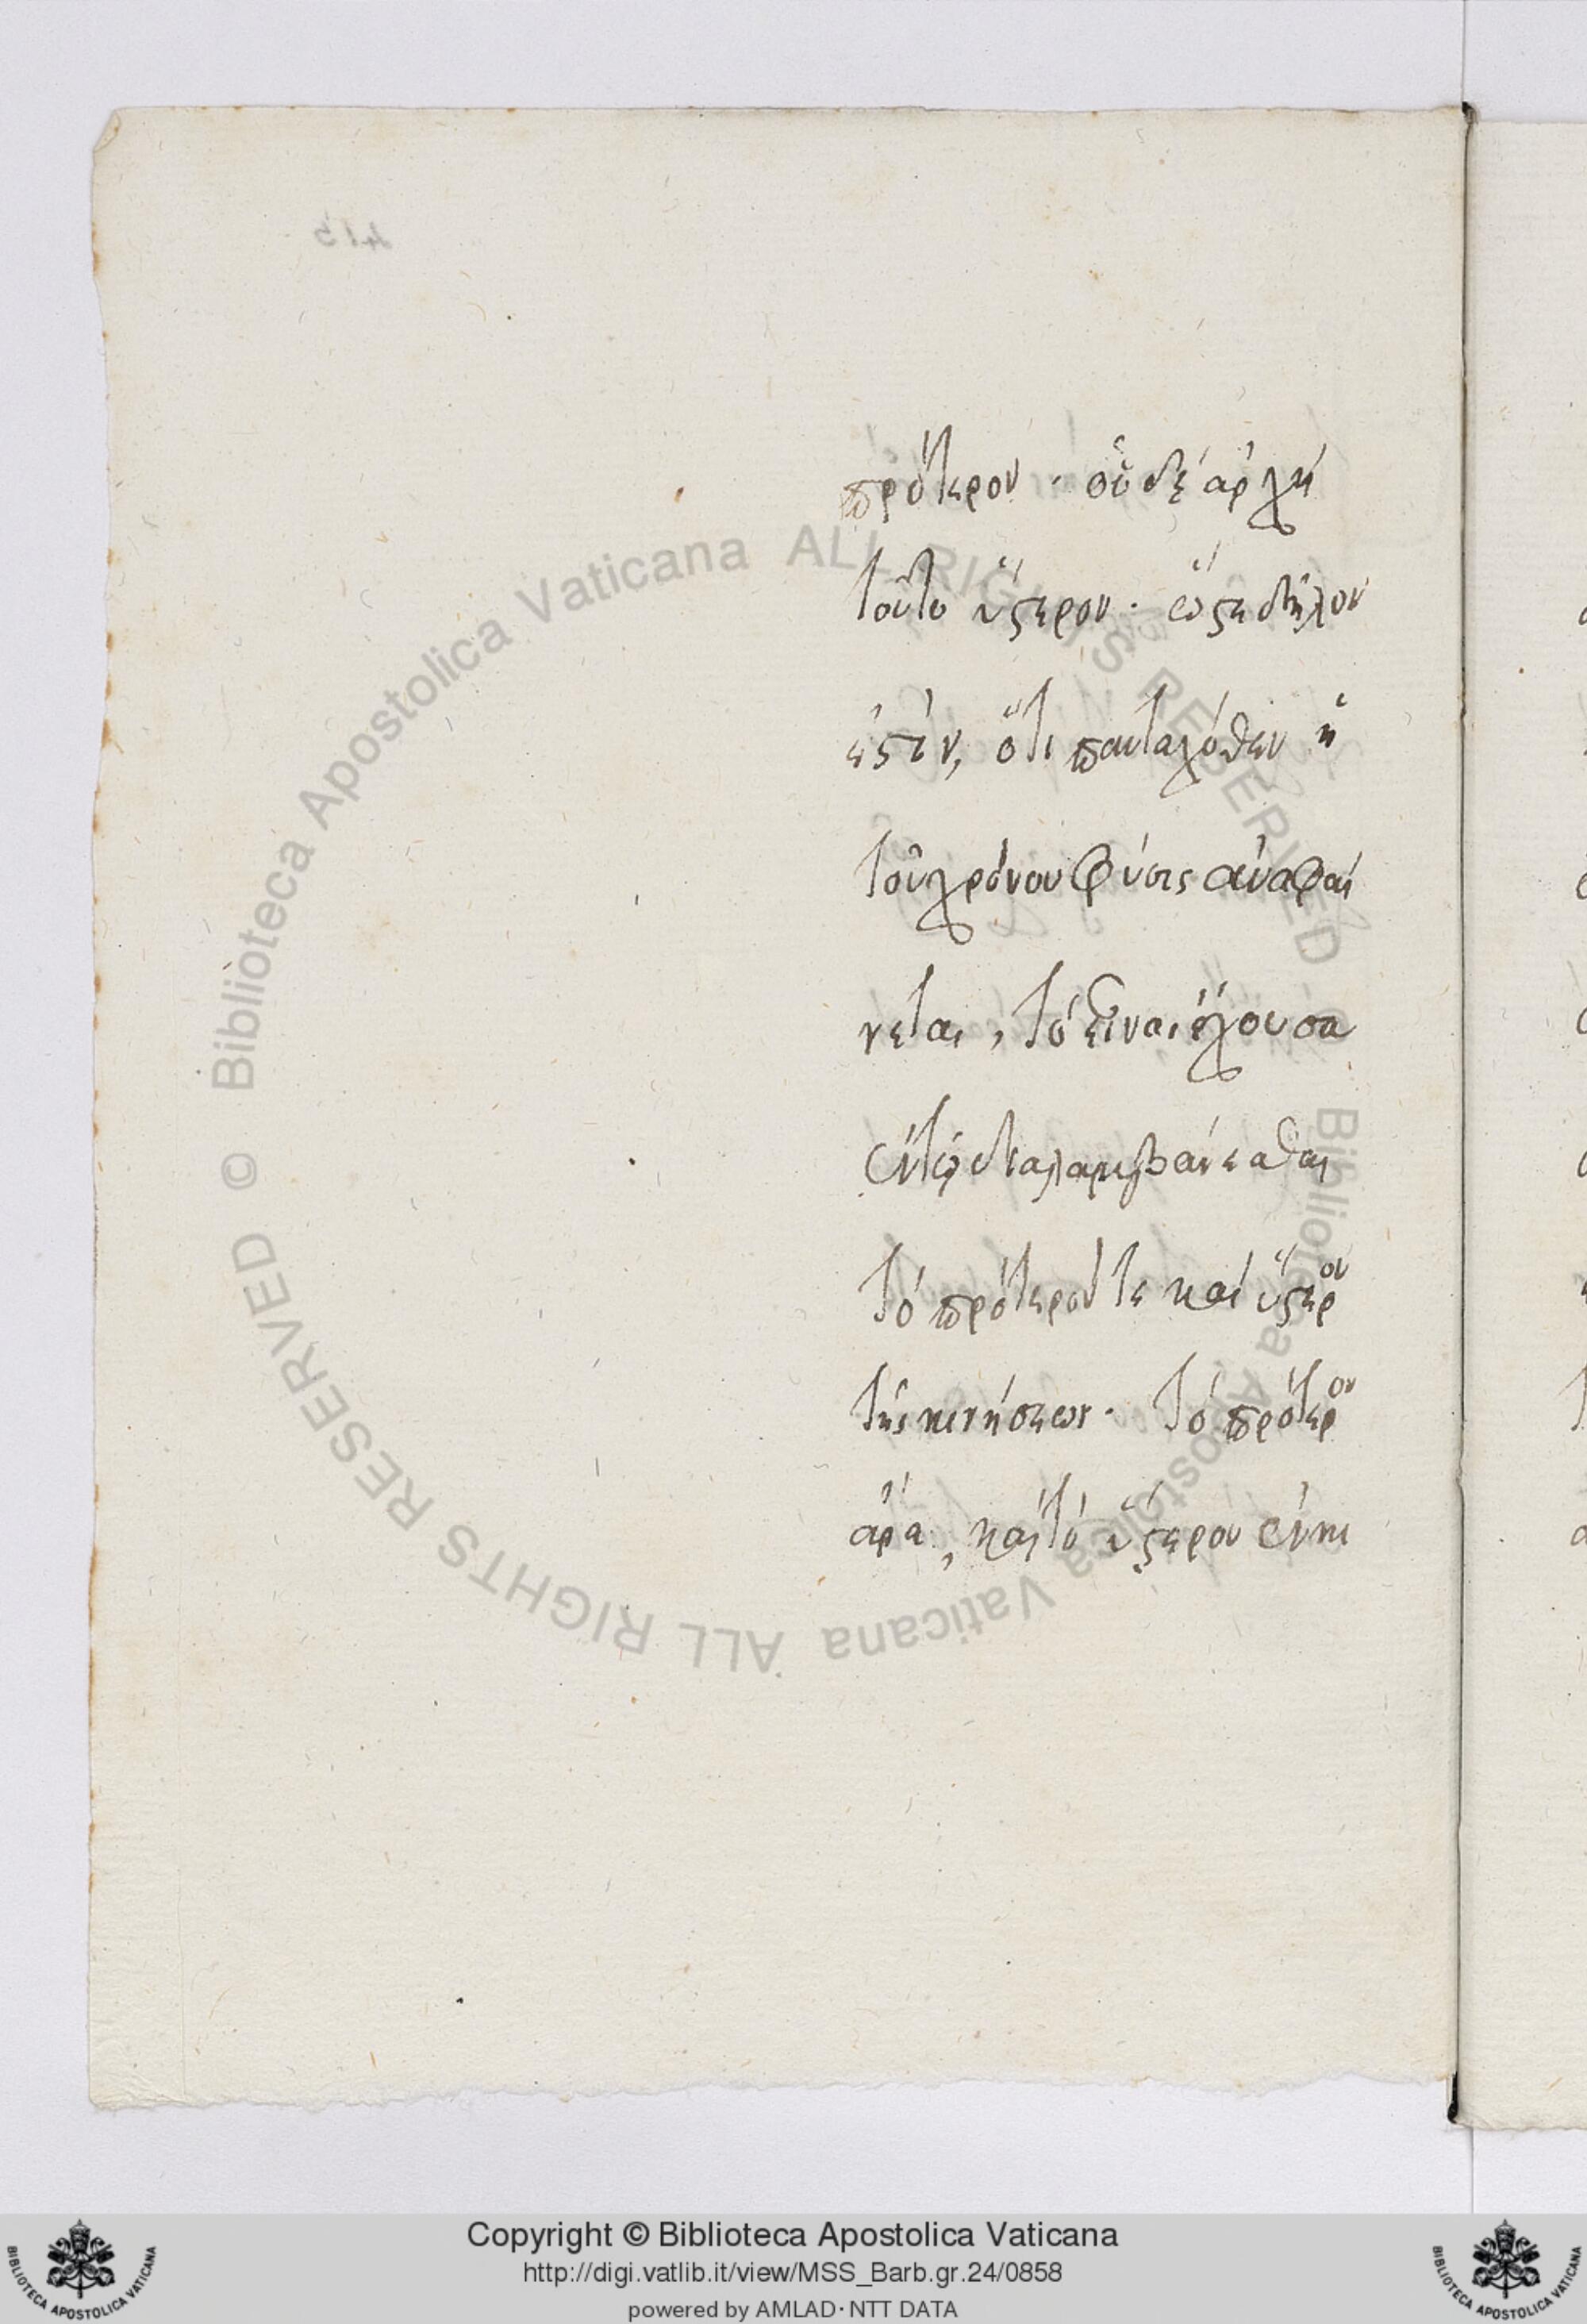 πρότερον · οὗ δὲ ἀρχὴ
τοῦτο ὕστερον · ὥστε δῆλον
ἐστὶν, ὅτι πανταχόθεν ἡ
τοῦ χρόνου φύσις ἀναφαί
νεται, τὸ εἶναι ἔχουσα
ἐν τῷ διαλαμβάνεσθαι
τὸ πρότερόν τε καὶ ὕστερον
τῆς κινήσεως · τὸ πρότερον
ἄρα, καὶ τὸ ὕστερον ἐν κι
Copyright © Biblioteca Apostolica Vaticana
http://digi.vatlib.it/view/MSS_Barb.gr.24/0858
powered by AMLAD·NTT DATA
© Biblioteca Apostolica Vaticana ALL RIGHTS RESERVED
Biblioteca Apostolica Vaticana ALL RIGHTS RESERVED
BIBLIOTECA APOSTOLICA VATICANA
BIBLIOTECA APOSTOLICA VATICANA